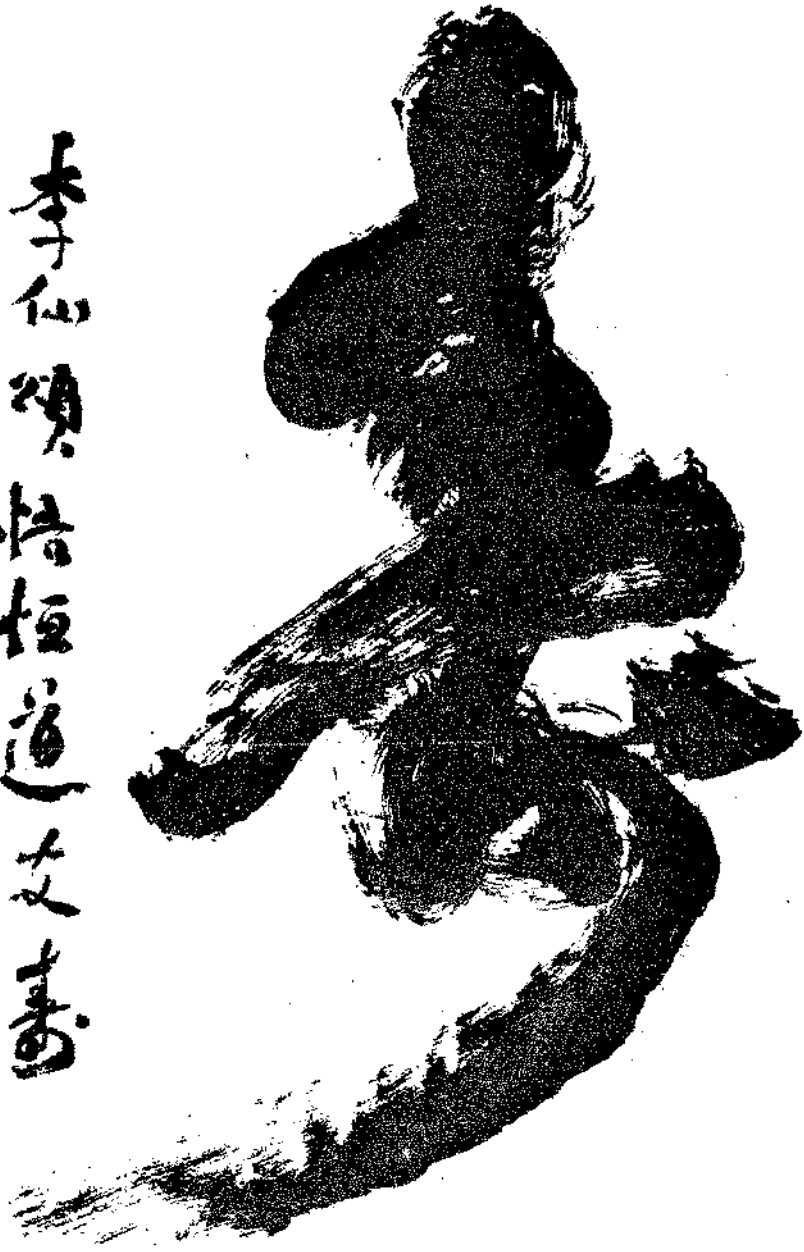 壽
李仙頌悟恒道艾壽